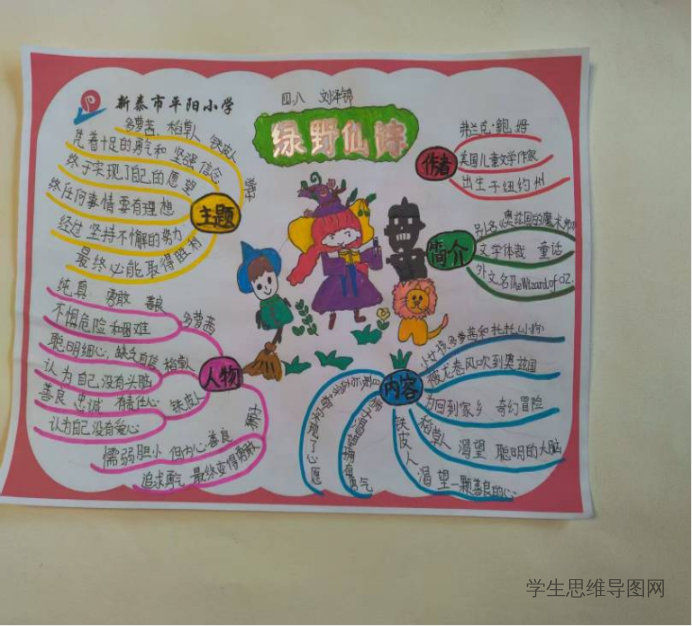 新泰市平阳小学
四.八 刘泽锦
绿野仙踪
作者
弗兰克·鲍姆
美国儿童文学作家
出生于纽约州
简介
别名《奥兹国的魔术师》
文学体裁 童话
外文名The Wizard of OZ.
主题
多萝茜、稻草人 铁皮人
狮子
凭着十足的勇气和坚强信念
终于实现了自己的愿望
做任何事情要有理想
经过坚持不懈的努力
最终必能取得胜利
人物
多萝茜
纯真 勇敢 善良
不惧危险和困难
稻草人
聪明细心,缺乏自信
认为自己没有头脑
铁皮人
善良 忠诚 有责任心
认为自己没有爱心
狮子
懦弱胆小 但内心善良
追求勇气 最终变得勇敢
内容
小女孩多萝茜和托托(小狗)
被龙卷风吹到奥兹国
为回到家乡 奇幻冒险
稻草人 渴望 聪明的大脑
铁皮人
渴望一颗善良的心
狮子
勇气
实现了心愿
学生思维导图网